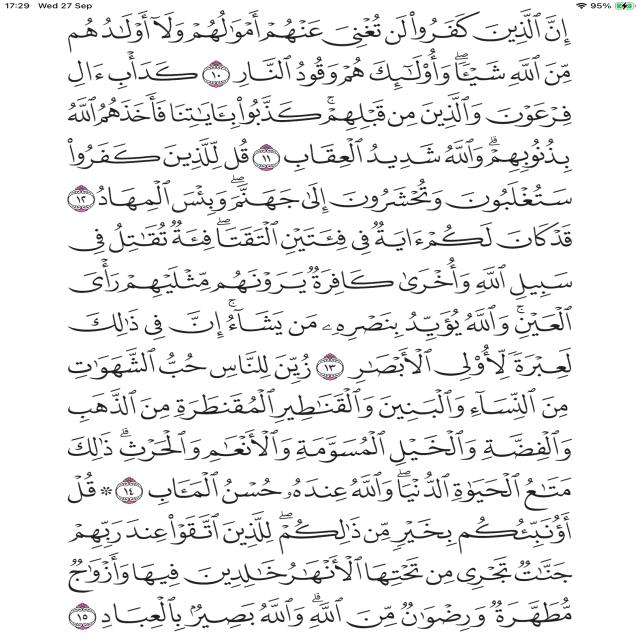 17:29 Wed 27 Sep 95%
إِنَّ ٱلَّذِينَ كَفَرُواْ لَن تُغْنِىَ عَنْهُمْ أَمْوَٰلُهُمْ وَلَآ أَوْلَـٰدُهُم
مِّنَ ٱللَّهِ شَيْـًٔا ۖ وَأُوْلَـٰٓئِكَ هُمْ وَقُودُ ٱلنَّارِ ١٠ كَدَأْبِ ءَالِ
فِرْعَوْنَ وَٱلَّذِينَ مِن قَبْلِهِمْ ۚ كَذَّبُواْ بِـَٔايَـٰتِنَا فَأَخَذَهُمُ ٱللَّهُ
بِذُنُوبِهِمْ ۗ وَٱللَّهُ شَدِيدُ ٱلْعِقَابِ ١١ قُل لِّلَّذِينَ كَفَرُواْ
سَتُغْلَبُونَ وَتُحْشَرُونَ إِلَىٰ جَهَنَّمَ ۚ وَبِئْسَ ٱلْمِهَادُ ١٢
قَدْ كَانَ لَكُمْ ءَايَةٌ فِى فِئَتَيْنِ ٱلْتَقَتَا ۖ فِئَةٌ تُقَـٰتِلُ فِى
سَبِيلِ ٱللَّهِ وَأُخْرَىٰ كَافِرَةٌ يَرَوْنَهُم مِّثْلَيْهِمْ رَأْىَ
ٱلْعَيْنِ ۚ وَٱللَّهُ يُؤَيِّدُ بِنَصْرِهِۦ مَن يَشَآءُ ۗ إِنَّ فِى ذَٰلِكَ
لَعِبْرَةً لِّأُوْلِى ٱلْأَبْصَـٰرِ ١٣ زُيِّنَ لِلنَّاسِ حُبُّ ٱلشَّهَوَٰتِ
مِنَ ٱلنِّسَآءِ وَٱلْبَنِينَ وَٱلْقَنَـٰطِيرِ ٱلْمُقَنطَرَةِ مِنَ ٱلذَّهَبِ
وَٱلْفِضَّةِ وَٱلْخَيْلِ ٱلْمُسَوَّمَةِ وَٱلْأَنْعَـٰمِ وَٱلْحَرْثِ ۗ ذَٰلِكَ
مَتَـٰعُ ٱلْحَيَوٰةِ ٱلدُّنْيَا ۖ وَٱللَّهُ عِندَهُۥ حُسْنُ ٱلْمَـَٔابِ ١٤ ۞ قُلْ
أَؤُنَبِّئُكُم بِخَيْرٍ مِّن ذَٰلِكُمْ ۚ لِلَّذِينَ ٱتَّقَوْاْ عِندَ رَبِّهِمْ
جَنَّـٰتٌ تَجْرِى مِن تَحْتِهَا ٱلْأَنْهَـٰرُ خَـٰلِدِينَ فِيهَا وَأَزْوَٰجٌ
مُّطَهَّرَةٌ وَرِضْوَٰنٌ مِّنَ ٱللَّهِ ۗ وَٱللَّهُ بَصِيرٌۢ بِٱلْعِبَادِ ١٥